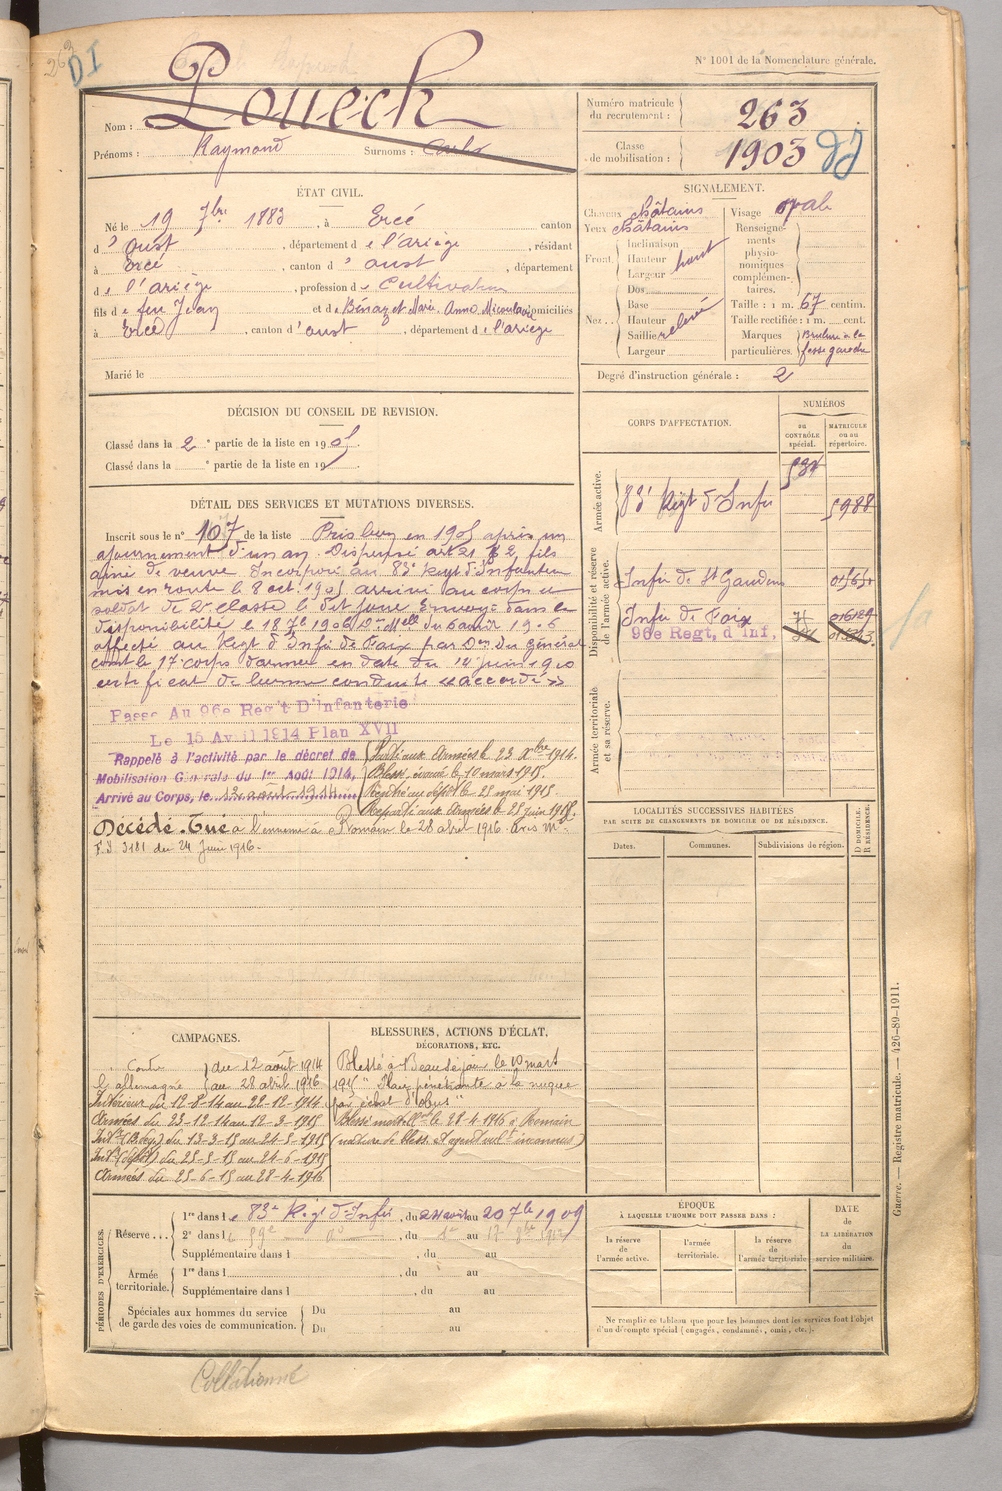 263
DI
N° 1001 de la Nomenclature générale.
Nom : Poueich
Prénoms : Raymond Surnoms :
Numéro matricule du recrutement : 263
Classe de mobilisation : 1903
ÉTAT CIVIL.
Né le 19 7bre 1883, à Ercé canton
d'Oust, département de l'ariège, résidant
à Ercé, canton d'oust, département
de l'ariège, profession de Cultivateur
fils de feu Jean et de Bénazet Marie Anne domiciliés
à Ercé, canton d'oust, département de l'ariège
Marié le
SIGNALEMENT.
Cheveux châtains
Yeux châtains
Front. Inclinaison
Hauteur haut
Largeur
Nez. Dos
Base
Hauteur
Saillie relevé
Largeur
Visage oval
Renseignements physionomiques complémentaires.
Taille : 1 m. 67 centim.
Taille rectifiée : 1 m. cent.
Marques particulières. Brulure à la fesse gauche
Degré d'instruction générale : 2
DÉCISION DU CONSEIL DE REVISION.
Classé dans la 2e partie de la liste en 1905.
Classé dans la e partie de la liste en 19
DÉTAIL DES SERVICES ET MUTATIONS DIVERSES.
Inscrit sous le n° 107 de la liste Pris bon en 1905 après un
ajournement d'un an. Dispensé art 21 § 2, fils
ainé de veuve. Incorporé au 83e Regt d'Infanterie
mis en route le 8 oct. 1905 arrivé au corps et
soldat de 2e classe le dit jour. Envoyé dans la
disponibilité le 18 7bre 1906
affecté au Regt d'Infie de Foix par Don du général
comt le 17e corps d'armée en date du 14 juin 1910
certificat de bonne conduite "accordé"
Passé Au 96e Reg't D'infanterie
Le 15 Avril 1914 Plan XVII
Rappelé à l'activité par le décret de
Mobilisation Générale du 1er Août 1914,
Arrivé au Corps, le 12 août 1914
Parti aux Armées le 23 Xbre 1914.
Blessé, évacué le 10 mars 1915.
Rentré au dépôt le 25 mai 1915.
Reparti aux Armées le 25 juin 1915.
Décédé. Tué à l'ennemi à Romain le 28 avril 1916. Avis Mel
F.J. 3181 du 24 Juin 1916.
CORPS D'AFFECTATION.
NUMÉROS
au CONTRÔLE spécial.
MATRICULE ou au répertoire.
Armée active.
83e Regt d'Infie 5988
Disponibilité et réserve de l'armée active.
Infie de St Gaudens
Infie de Foix
96e Regt, d'Inf,
Armée territoriale et sa réserve.
LOCALITÉS SUCCESSIVES HABITÉES
PAR SUITE DE CHANGEMENTS DE DOMICILE OU DE RÉSIDENCE.
D DOMICILE. R RÉSIDENCE.
Dates. Communes. Subdivisions de région.
CAMPAGNES.
Contre du 12 août 1914
l'allemagne au 28 avril 1916
Intérieur du 12-8-14 au 22-12-1914
Armées du 23-12-14 au 12-3-1915
du 13-3-15 au 24-5-1915
Intr (dépôt) du 25-5-15 au 24-6-1915
Armées du 25-6-15 au 28-4-1916
BLESSURES, ACTIONS D'ÉCLAT.
DÉCORATIONS, ETC.
Blessé à Beauséjour le 10 mars
1915 "Plaie pénétrante à la nuque
par éclat d'obus"
Blessé mortellnt le 28-4-1916 à Romain
(nature de bless. et agent vult inconnus)
PÉRIODES D'EXERCICES.
Réserve... 1re dans le 83e Regt d'Infie, du 24 août au 20 7bre 1909
2e dans le 59e do, du 1er au
Supplémentaire dans l , du au
Armée territoriale. 1re dans l , du au
Supplémentaire dans l , du au
Spéciales aux hommes du service de garde des voies de communication. Du au
Du au
ÉPOQUE
À LAQUELLE L'HOMME DOIT PASSER DANS :
la réserve de l'armée active.
l'armée territoriale.
la réserve de l'armée territoriale
DATE de LA LIBÉRATION du service militaire.
Ne remplir ce tableau que pour les hommes dont les services font l'objet
d'un décompte spécial (engagés, condamnés, omis, etc.).
Guerre. — Registre matricule. — 426-89-1911.
Collationné